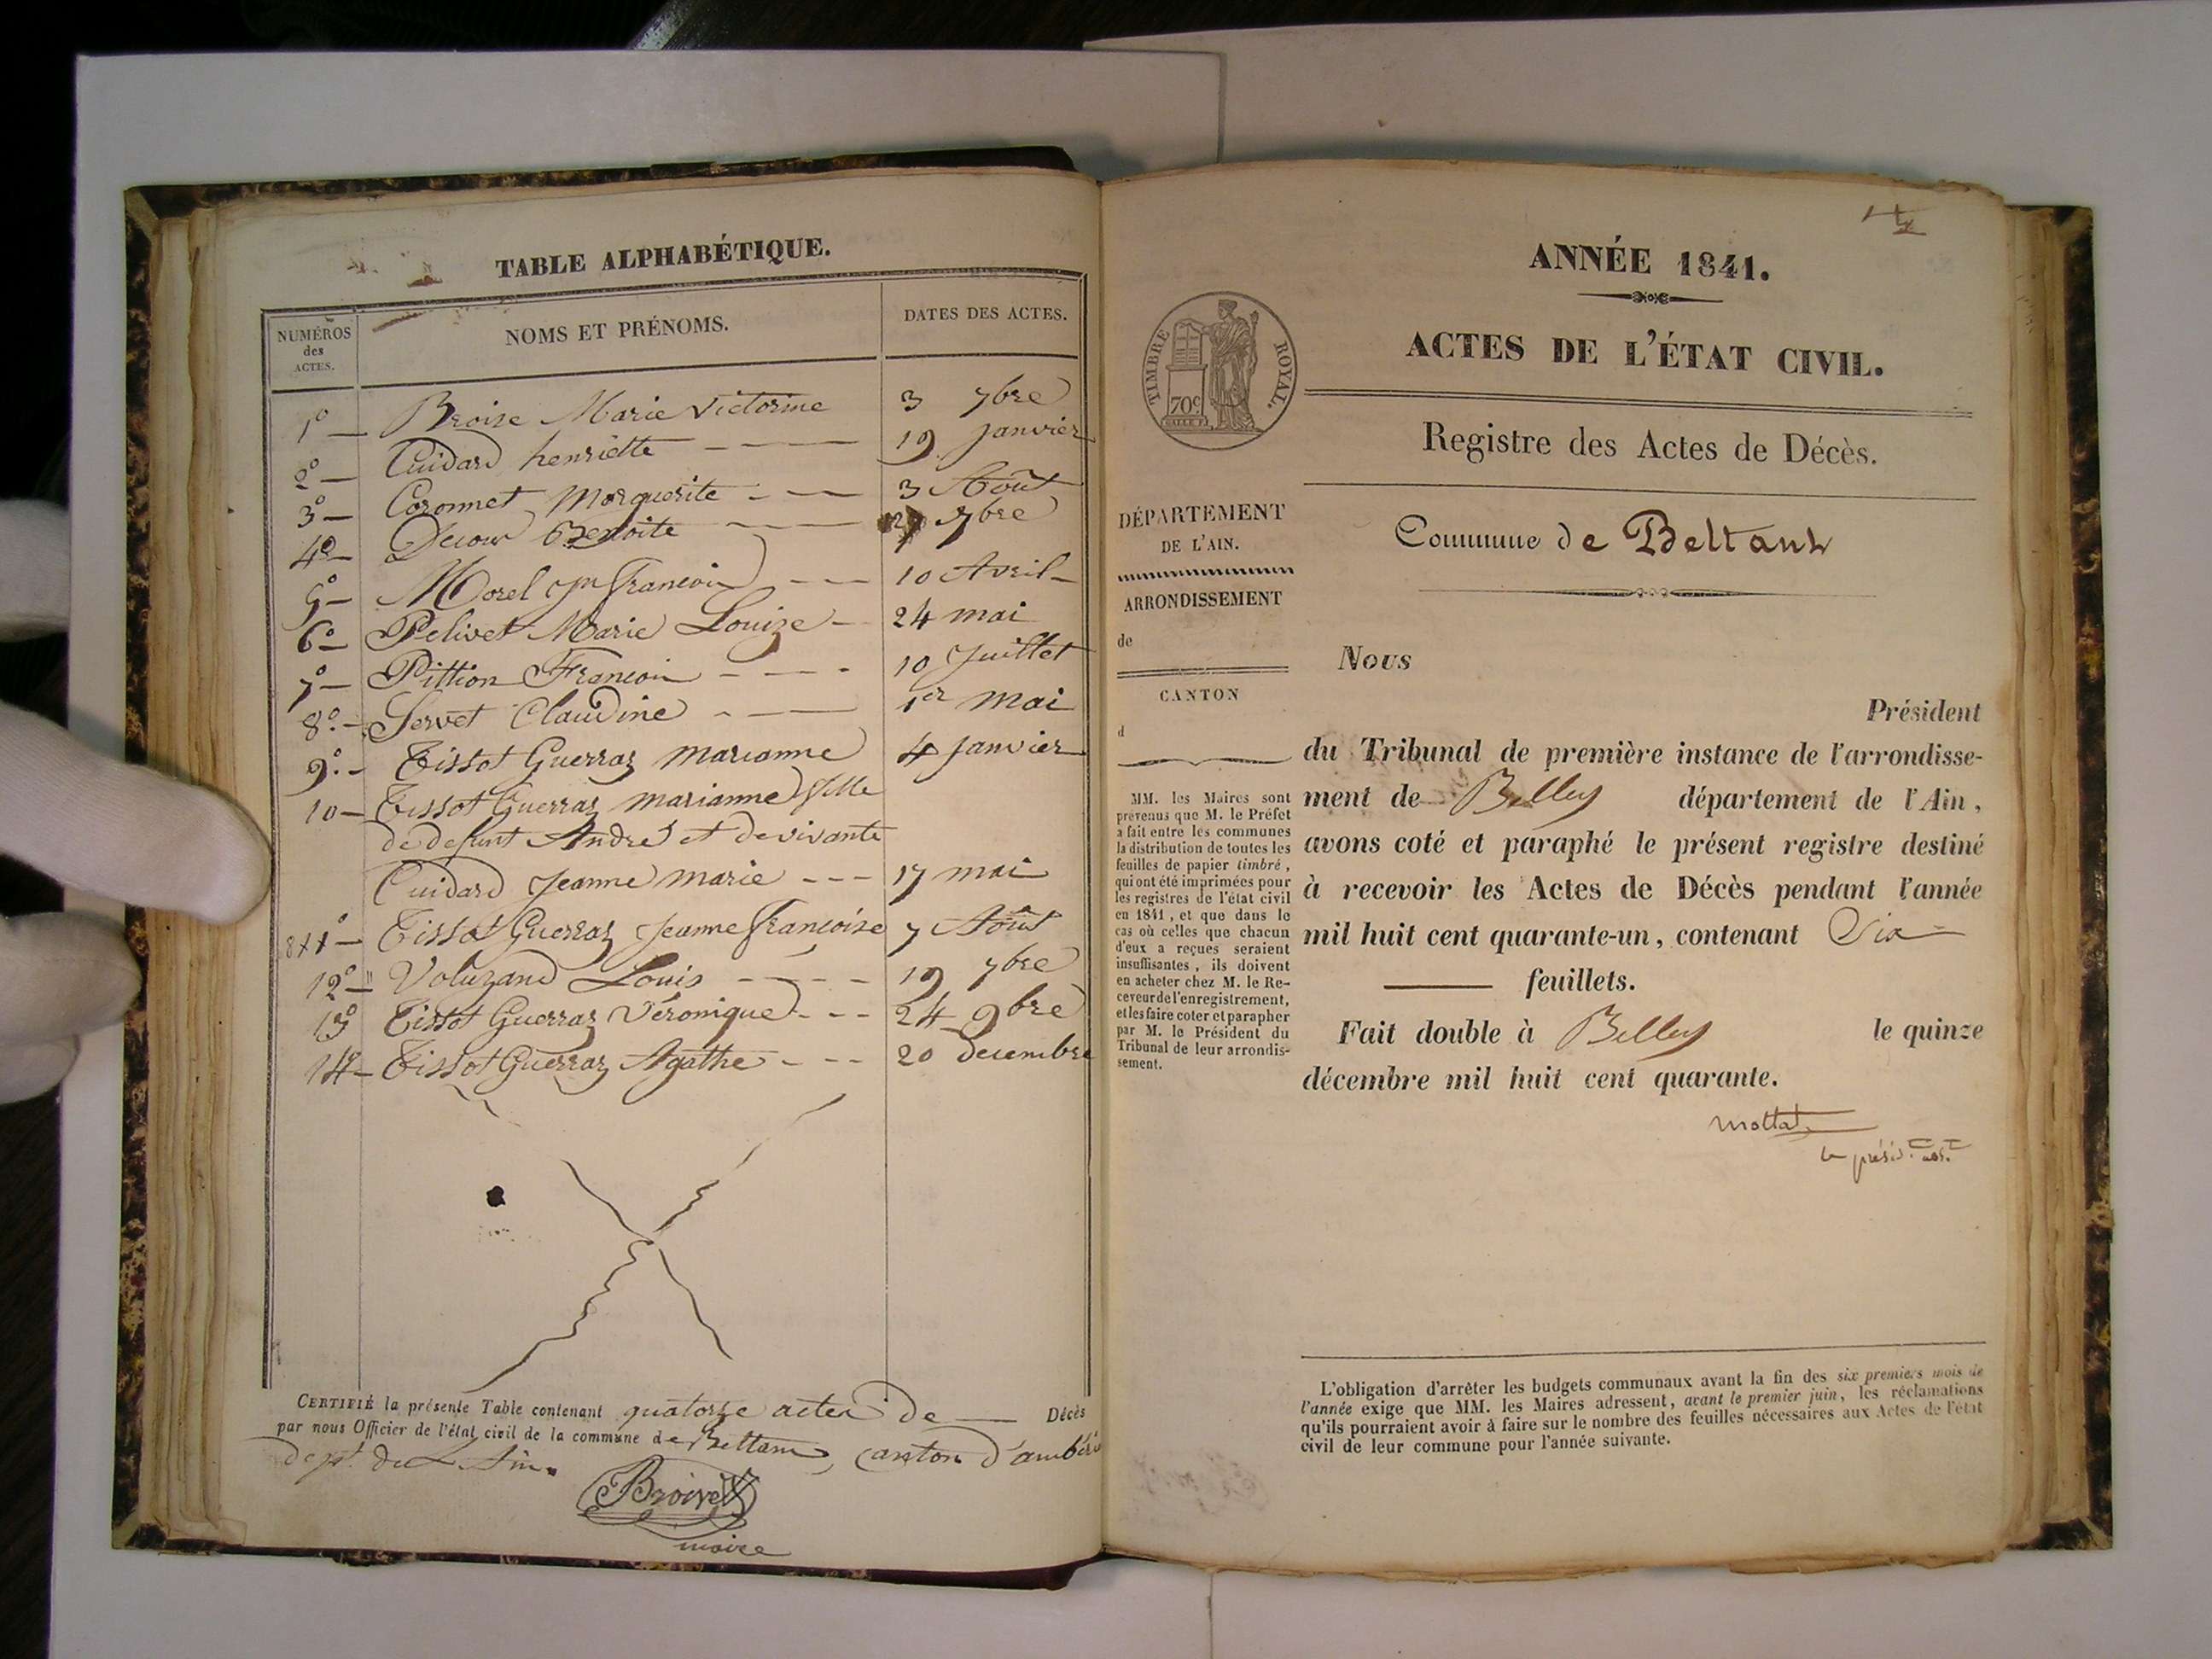 TABLE ALPHABÉTIQUE.
NUMÉROS
des
ACTES.
NOMS ET PRÉNOMS.
DATES DES ACTES.
1º — Broise Marie Victorine 3 7bre
2º — Cuidard henriette — — 19 Janvier
3º — Coronnet Marguerite - — 3 Août
4º — Decour Benoite — — 7bre
5º — Morel jn François — — 10 Avril —
6º — Pelivet Marie Louize — 24 mai
7º — Pittion François - — - 10 Juillet
8º. — Servet Claudine - — 1er Mai
9º. — Tissot Guerraz Marianne 4 Janvier
10 — Tissot Guerraz marianne fille
de defunt André et de vivante
Cuidard Jeanne marie - - - 17 mai
11º — Tissot Guerraz Jeanne Françoise 7 Août
12º — " Voluzand Louis - — - - 19 7bre
13º Tissot Guerraz Véronique - - - 24 9bre
14º — Tissot Guerraz Agathe - — - 20 decembre
CERTIFIÉ la présente Table contenant quatorze actes de — Décès
par nous Officier de l'état civil de la commune de Bettant, canton d'ambérieu
dept. de L'Ain.
Broise
maire
ANNÉE 1841.
ACTES DE L'ÉTAT CIVIL.
TIMBRE ROYAL.
70c
Registre des Actes de Décès.
Commune de Bettant
DÉPARTEMENT
DE L'AIN.
ARRONDISSEMENT
de
CANTON
d
MM. les Maires sont
prévenus que M. le Préfet
a fait entre les communes
la distribution de toutes les
feuilles de papier timbré,
qui ont été imprimées pour
les registres de l'état civil
en 1841, et que dans le
cas où celles que chacun
d'eux a reçues seraient
insuffisantes, ils doivent
en acheter chez M. le Re-
ceveur de l'enregistrement,
et les faire coter et parapher
par M. le Président du
Tribunal de leur arrondis-
sement.
Nous
Président
du Tribunal de première instance de l'arrondisse-
ment de Belley département de l'Ain,
avons coté et paraphé le présent registre destiné
à recevoir les Actes de Décès pendant l'année
mil huit cent quarante-un, contenant Six —
— feuillets.
Fait double à Belley le quinze
décembre mil huit cent quarante.
Mottat
L'obligation d'arrêter les budgets communaux avant la fin des six premiers mois de
l'année exige que MM. les Maires adressent, avant le premier juin, les réclamations
qu'ils pourraient avoir à faire sur le nombre des feuilles nécessaires aux Actes de l'état
civil de leur commune pour l'année suivante.